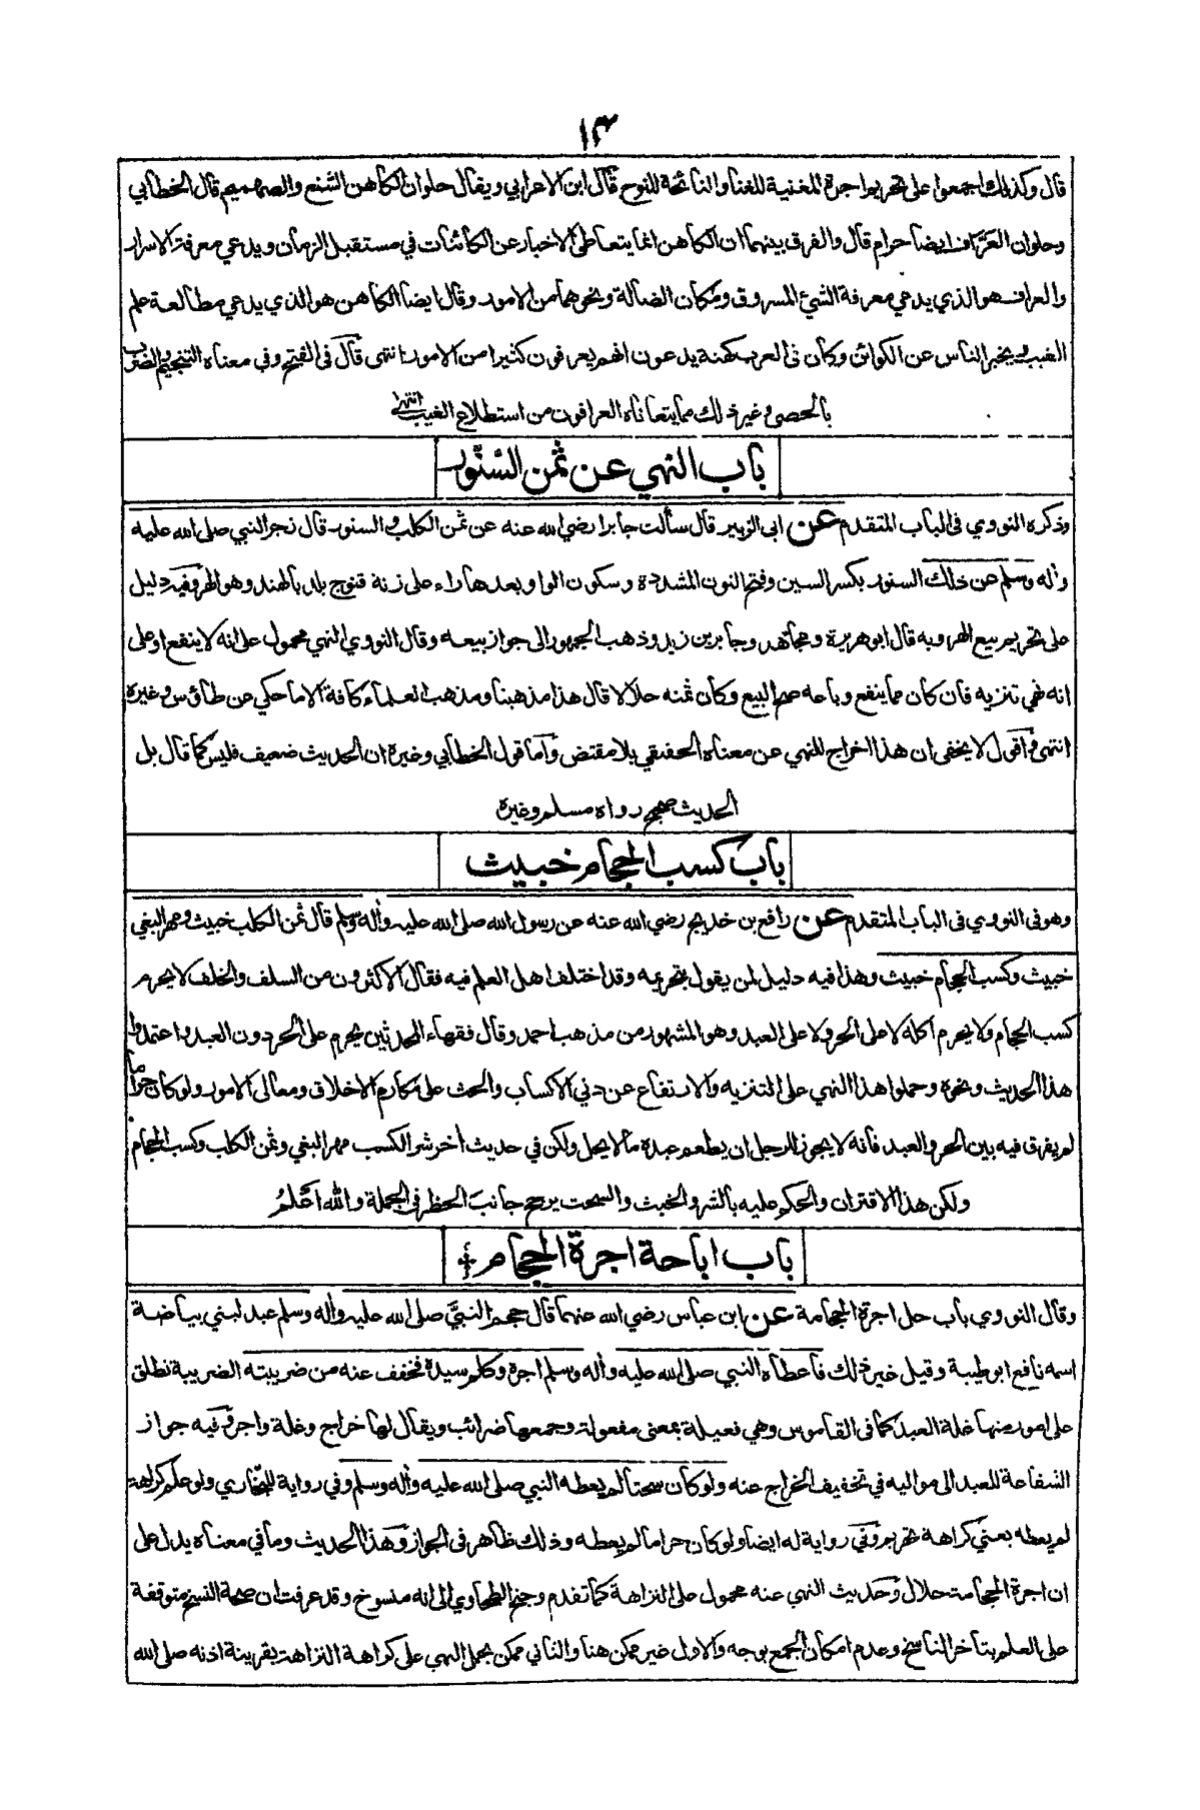 ١٣
قال وكذلك اجمعوا على تحريم اجرة المغنية للغناء والنائحة للنوح قال ابن الاعرابي ويقال حلوان الكاهن الشنع والصهميم قال الخطابي
وحلوان العرّاف ايضا حرام قال والفرق بينهما ان الكاهن انما يتعاطى الاخبار عن الكائنات في مستقبل الزمان ويدعي معرفة الاسرار
والعراف هو الذي يدعي معرفة الشئ المسروق ومكان الضالة ونحوهما من الامور وقال ايضا الكاهن هو الذي يدعي مطالعة علم
الغيب ويخبر الناس عن الكوائن وكان في العرب كهنة يدعون انهم يعرفون كثيرا من الامور انتهى قال في الفتح وفي معناه التنجيم والضرب
بالحصى وغير ذلك مما يتعاناه العرافون من استطلاع الغيب انتهى
باب النهي عن ثمن السنّور
وذكره النووي في الباب المتقدم عن ابي الزبير قال سألت جابرا رضي الله عنه عن ثمن الكلب والسنور قال زجر النبي صلى الله عليه
وأله وسلم عن ذلك السنور بكسر السين وفتح النون المشددة وسكون الواو بعدها راء على زنة قنوج بلد بالهند وهو الهر وفيه دليل
على تحريم بيع الهر وبه قال ابو هريرة ومجاهد وجابر بن زيد وذهب الجمهور الى جواز بيعه وقال النووي النهي محمول على انه لا ينفع او على
انه نهي تنزيه فان كان مما ينفع وباعه صح البيع وكان ثمنه حلالا قال هذا مذهبنا ومذهب العلماء كافة الا ما حكي عن طاؤس وغيره
انتهى واقول لا يخفى ان هذا اخراج للنهي عن معناه الحقيقي بلا مقتض واما قول الخطابي وغيره ان الحديث ضعيف فليس كما قال بل
الحديث صحيح رواه مسلم وغيره
باب كسب الحجام خبيث
وهو في النووي في الباب المتقدم عن رافع بن خديج رضي الله عنه عن رسول الله صلى الله عليه وأله وسلم قال ثمن الكلب خبيث ومهر البغي
خبيث وكسب الحجام خبيث وهذا فيه دليل لمن يقول بتحريمه وقد اختلف اهل العلم فيه فقال الاكثرون من السلف والخلف لا يحرم
كسب الحجام ولا يحرم اكله لا على الحر ولا على العبد وهو المشهور من مذهب احمد وقال فقهاء المحدثين يحرم على الحر دون العبد واعتمدوا
هذا الحديث ونحوه وحملوا هذا النهي على التنزيه والارتفاع عن دني الاكساب والحث على مكارم الاخلاق ومعالي الامور ولو كان حراما
لم يفرق فيه بين الحر والعبد فانه لا يجوز للرجل ان يطعم عبده ما لا يحل ولكن في حديث أخر شر الكسب مهر البغي وثمن الكلب وكسب الحجام
ولكن هذا الاقتران والحكم عليه بالشر والخبث والسحت يرجح جانب الحظر في الجملة والله اعلم
باب اباحة اجرة الحجام
وقال النووي باب حل اجرة الحجامة عن ابن عباس رضي الله عنهما قال حجم النبيَّ صلى الله عليه وأله وسلم عبد لبني بياضة
اسمه نافع ابو طيبة وقيل غير ذلك فأعطاه النبي صلى الله عليه وأله وسلم اجره وكلم سيده فخفف عنه من ضريبته الضريبة تطلق
على امور منها غلة العبد كما في القاموس وهي فعيلة بمعنى مفعولة وجمعها ضرائب ويقال لها خراج وغلة واجر وفيه جواز
الشفاعة للعبد الى مواليه في تخفيف الخراج عنه ولو كان سحتا لم يعطه النبي صلى الله عليه وأله وسلم وفي رواية للبخاري ولو علم كراهة
لم يعطه يعني كراهة تحريم وفي رواية له ايضا ولو كان حراما لم يعطه وذلك ظاهر في الجواز وهذا الحديث وما في معناه يدل على
ان اجرة الحجامة حلال وحديث النهي عنه محمول على النزاهة كما تقدم وجنح الطحاوي الى انه منسوخ وقد عرفت ان صحة النسخ متوقفة
على العلم بتأخر الناسخ وعدم امكان الجمع بوجه والاول غير ممكن هنا والثاني ممكن بحمل النهي على كراهة النزاهة بقرينة اذنه صلى الله